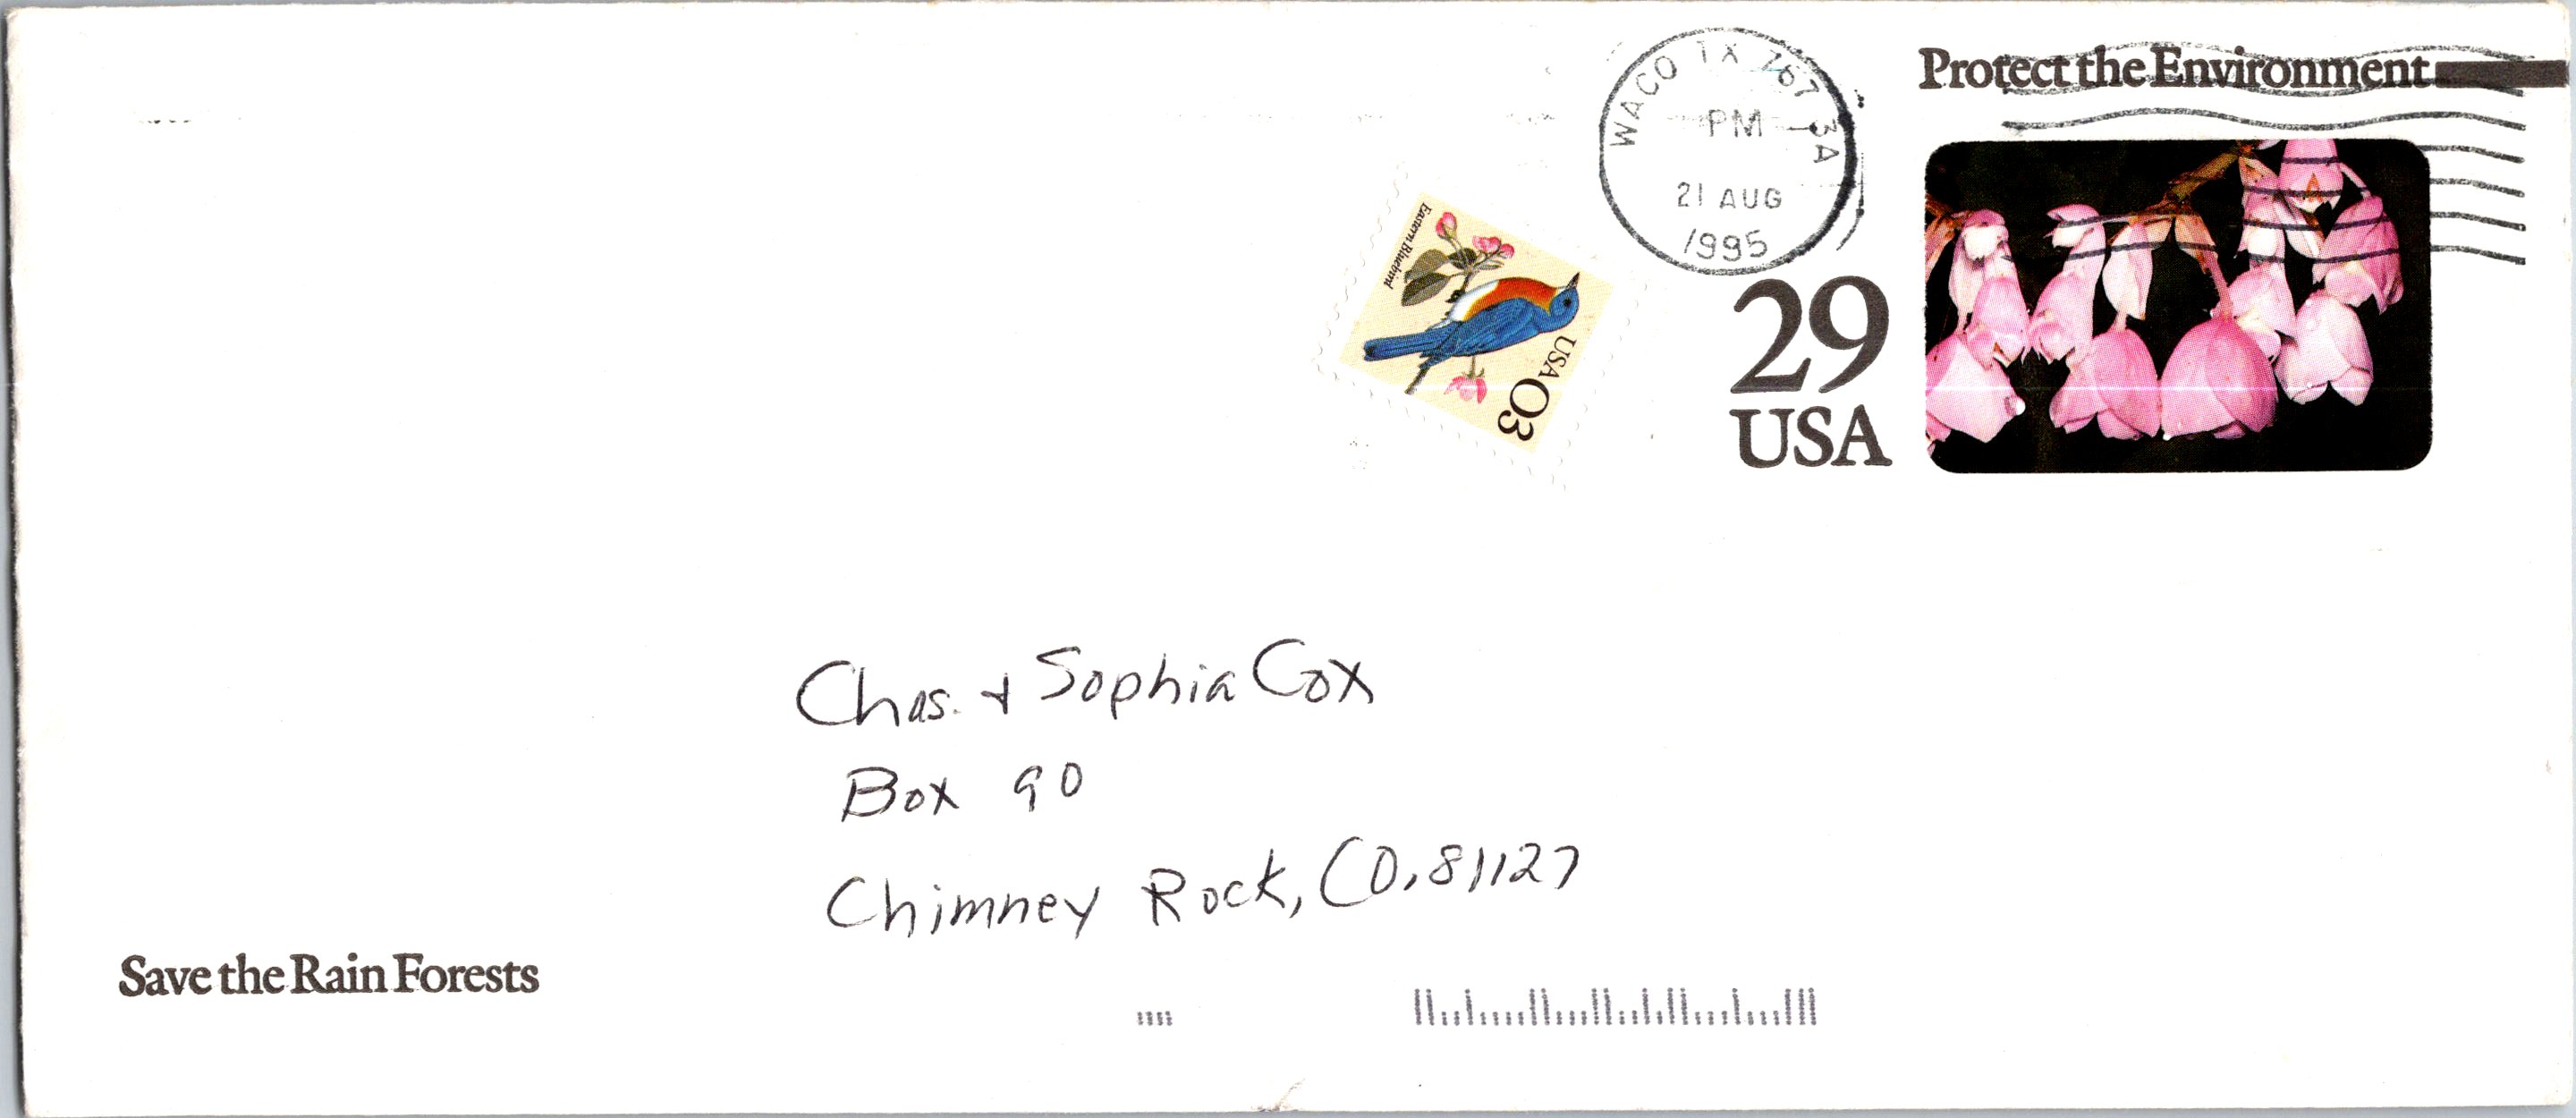 Protect the Environment
WACO TX 767 3A
PM
21 AUG
1995
Eastern Bluebird
USA 03
29
USA
Chas. + Sophia Cox
Box 90
Chimney Rock, CO. 81127
Save the Rain Forests